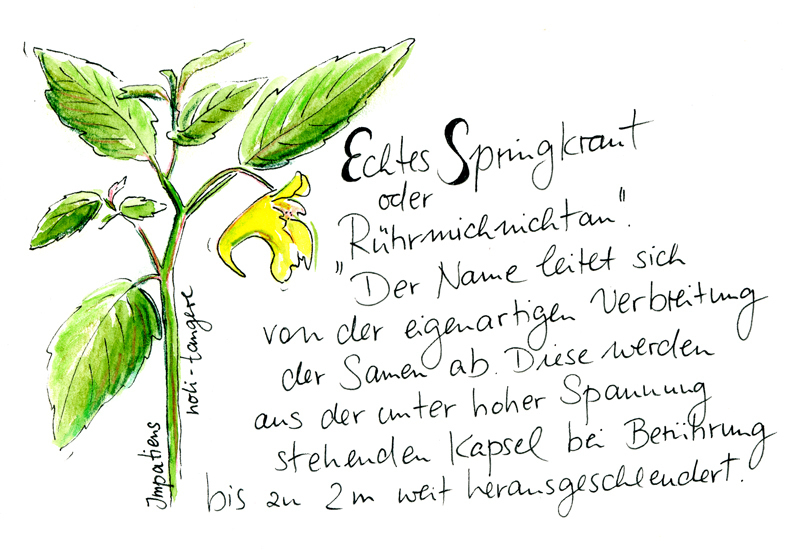 Echtes Springkraut
oder
"Rührmichnichtan".
Der Name leitet sich
von der eigenartigen Verbreitung
der Samen ab. Diese werden
aus der unter hoher Spannung
stehenden Kapsel bei Berührung
bis zu 2m weit herausgeschleudert.
Impatiens
noli-tangere